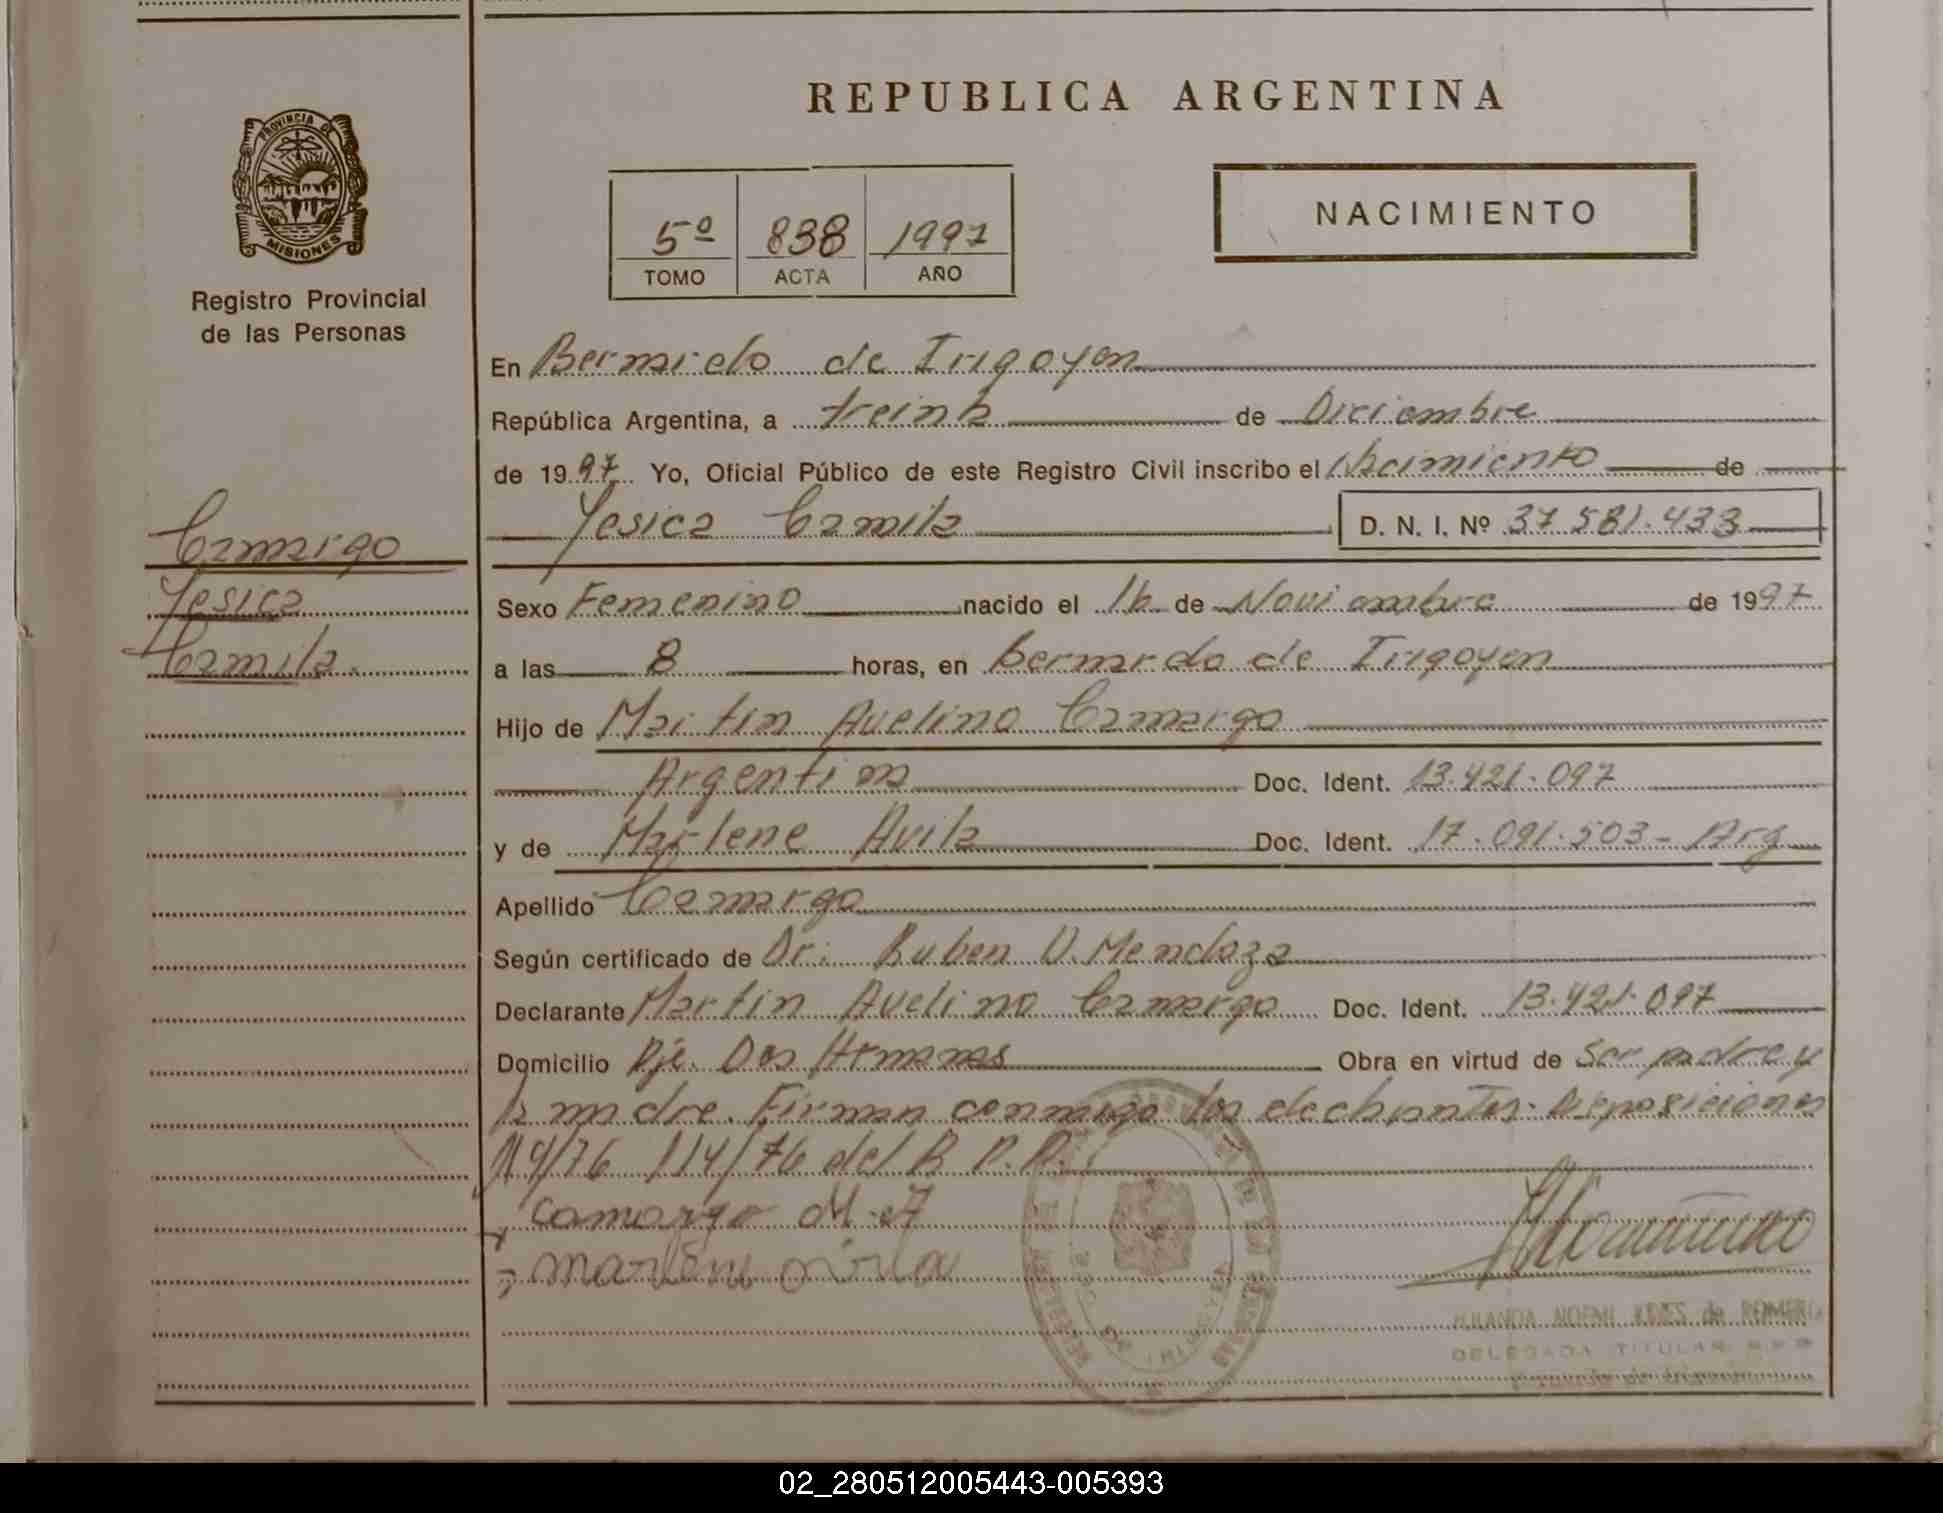 REPUBLICA ARGENTINA
PROVINCIA DE
MISIONES
Registro Provincial
de las Personas
5º 838 1997
TOMO ACTA AÑO
NACIMIENTO
En Bernardo de Irigoyen
República Argentina, a treinta de Diciembre
de 1997. Yo, Oficial Público de este Registro Civil inscribo el Nacimiento de
Yesica Camila D. N. I. Nº 37.581.433
Camargo
Yesica
Camila.
Sexo Femenino nacido el 16 de Noviembre de 1997
a las 8 horas, en Bernardo de Irigoyen
Hijo de Martin Avelino Camargo
Argentina Doc. Ident. 13.421.097
y de Marlene Avila Doc. Ident. 17.091.503- Arg
Apellido Camargo
Según certificado de Dr: Ruben D. Mendoza
Declarante Martin Avelino Camargo Doc. Ident. 13.421.097
Domicilio Pje. Dos Hermanas Obra en virtud de Ser padre y
la madre. Firman conmigo los declarantes. Disposiciones
114/76 del R.P.P.
Camargo M. A
DELEGADA TITULAR
02_280512005443-005393